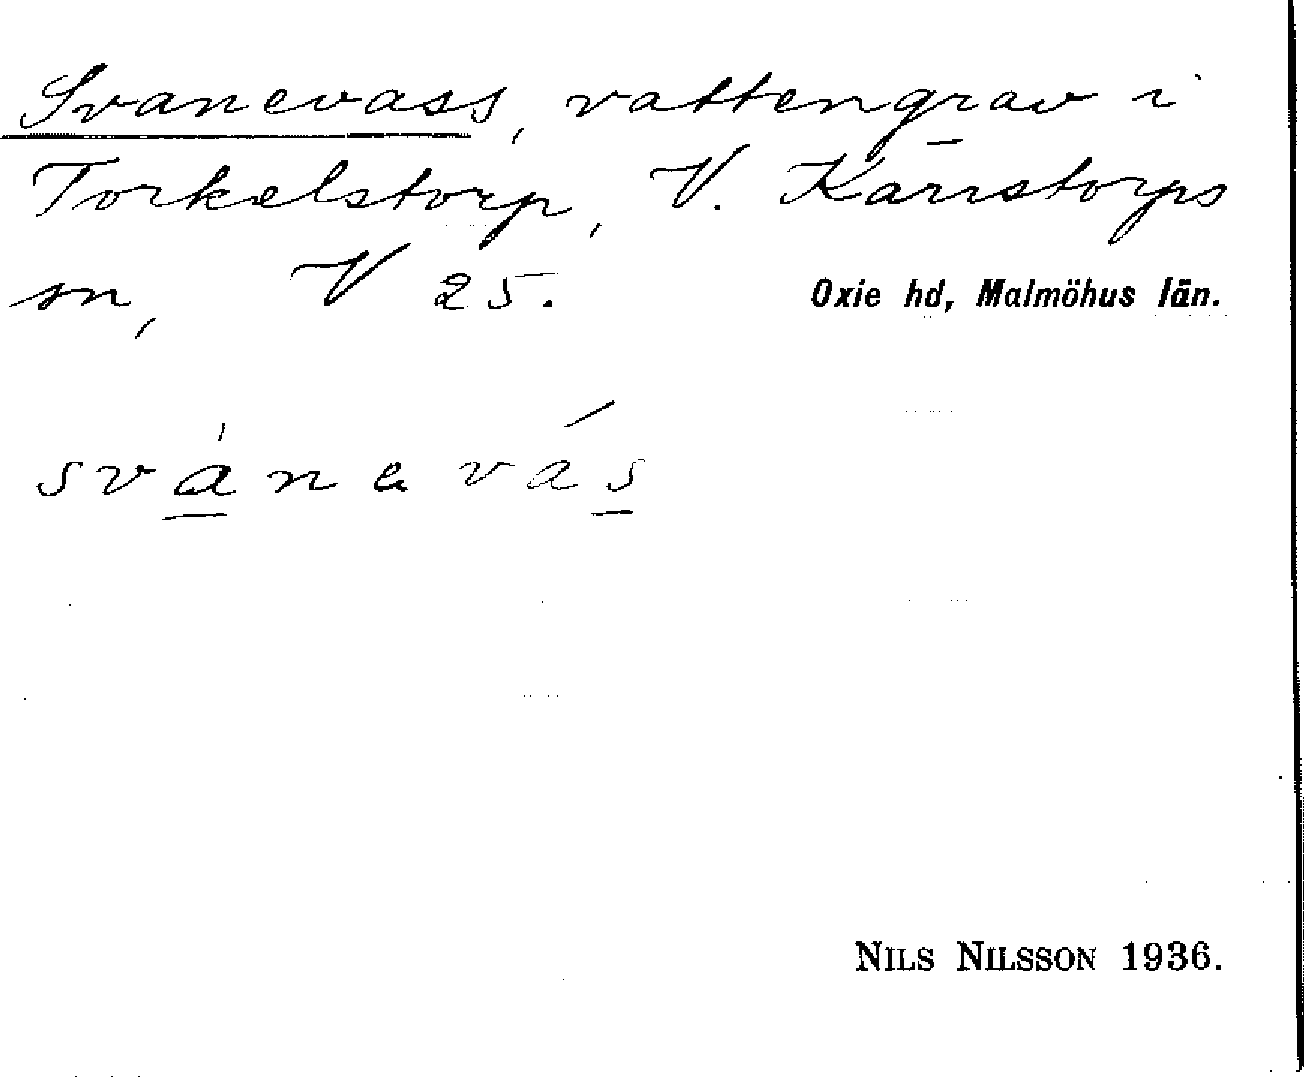 Svanevass, vattengrav i
Torkelstorp, V. Kärrstorps
sn, V 25. Oxie hd, Malmöhus län.
svánavás
NILS NILSSON 1936.